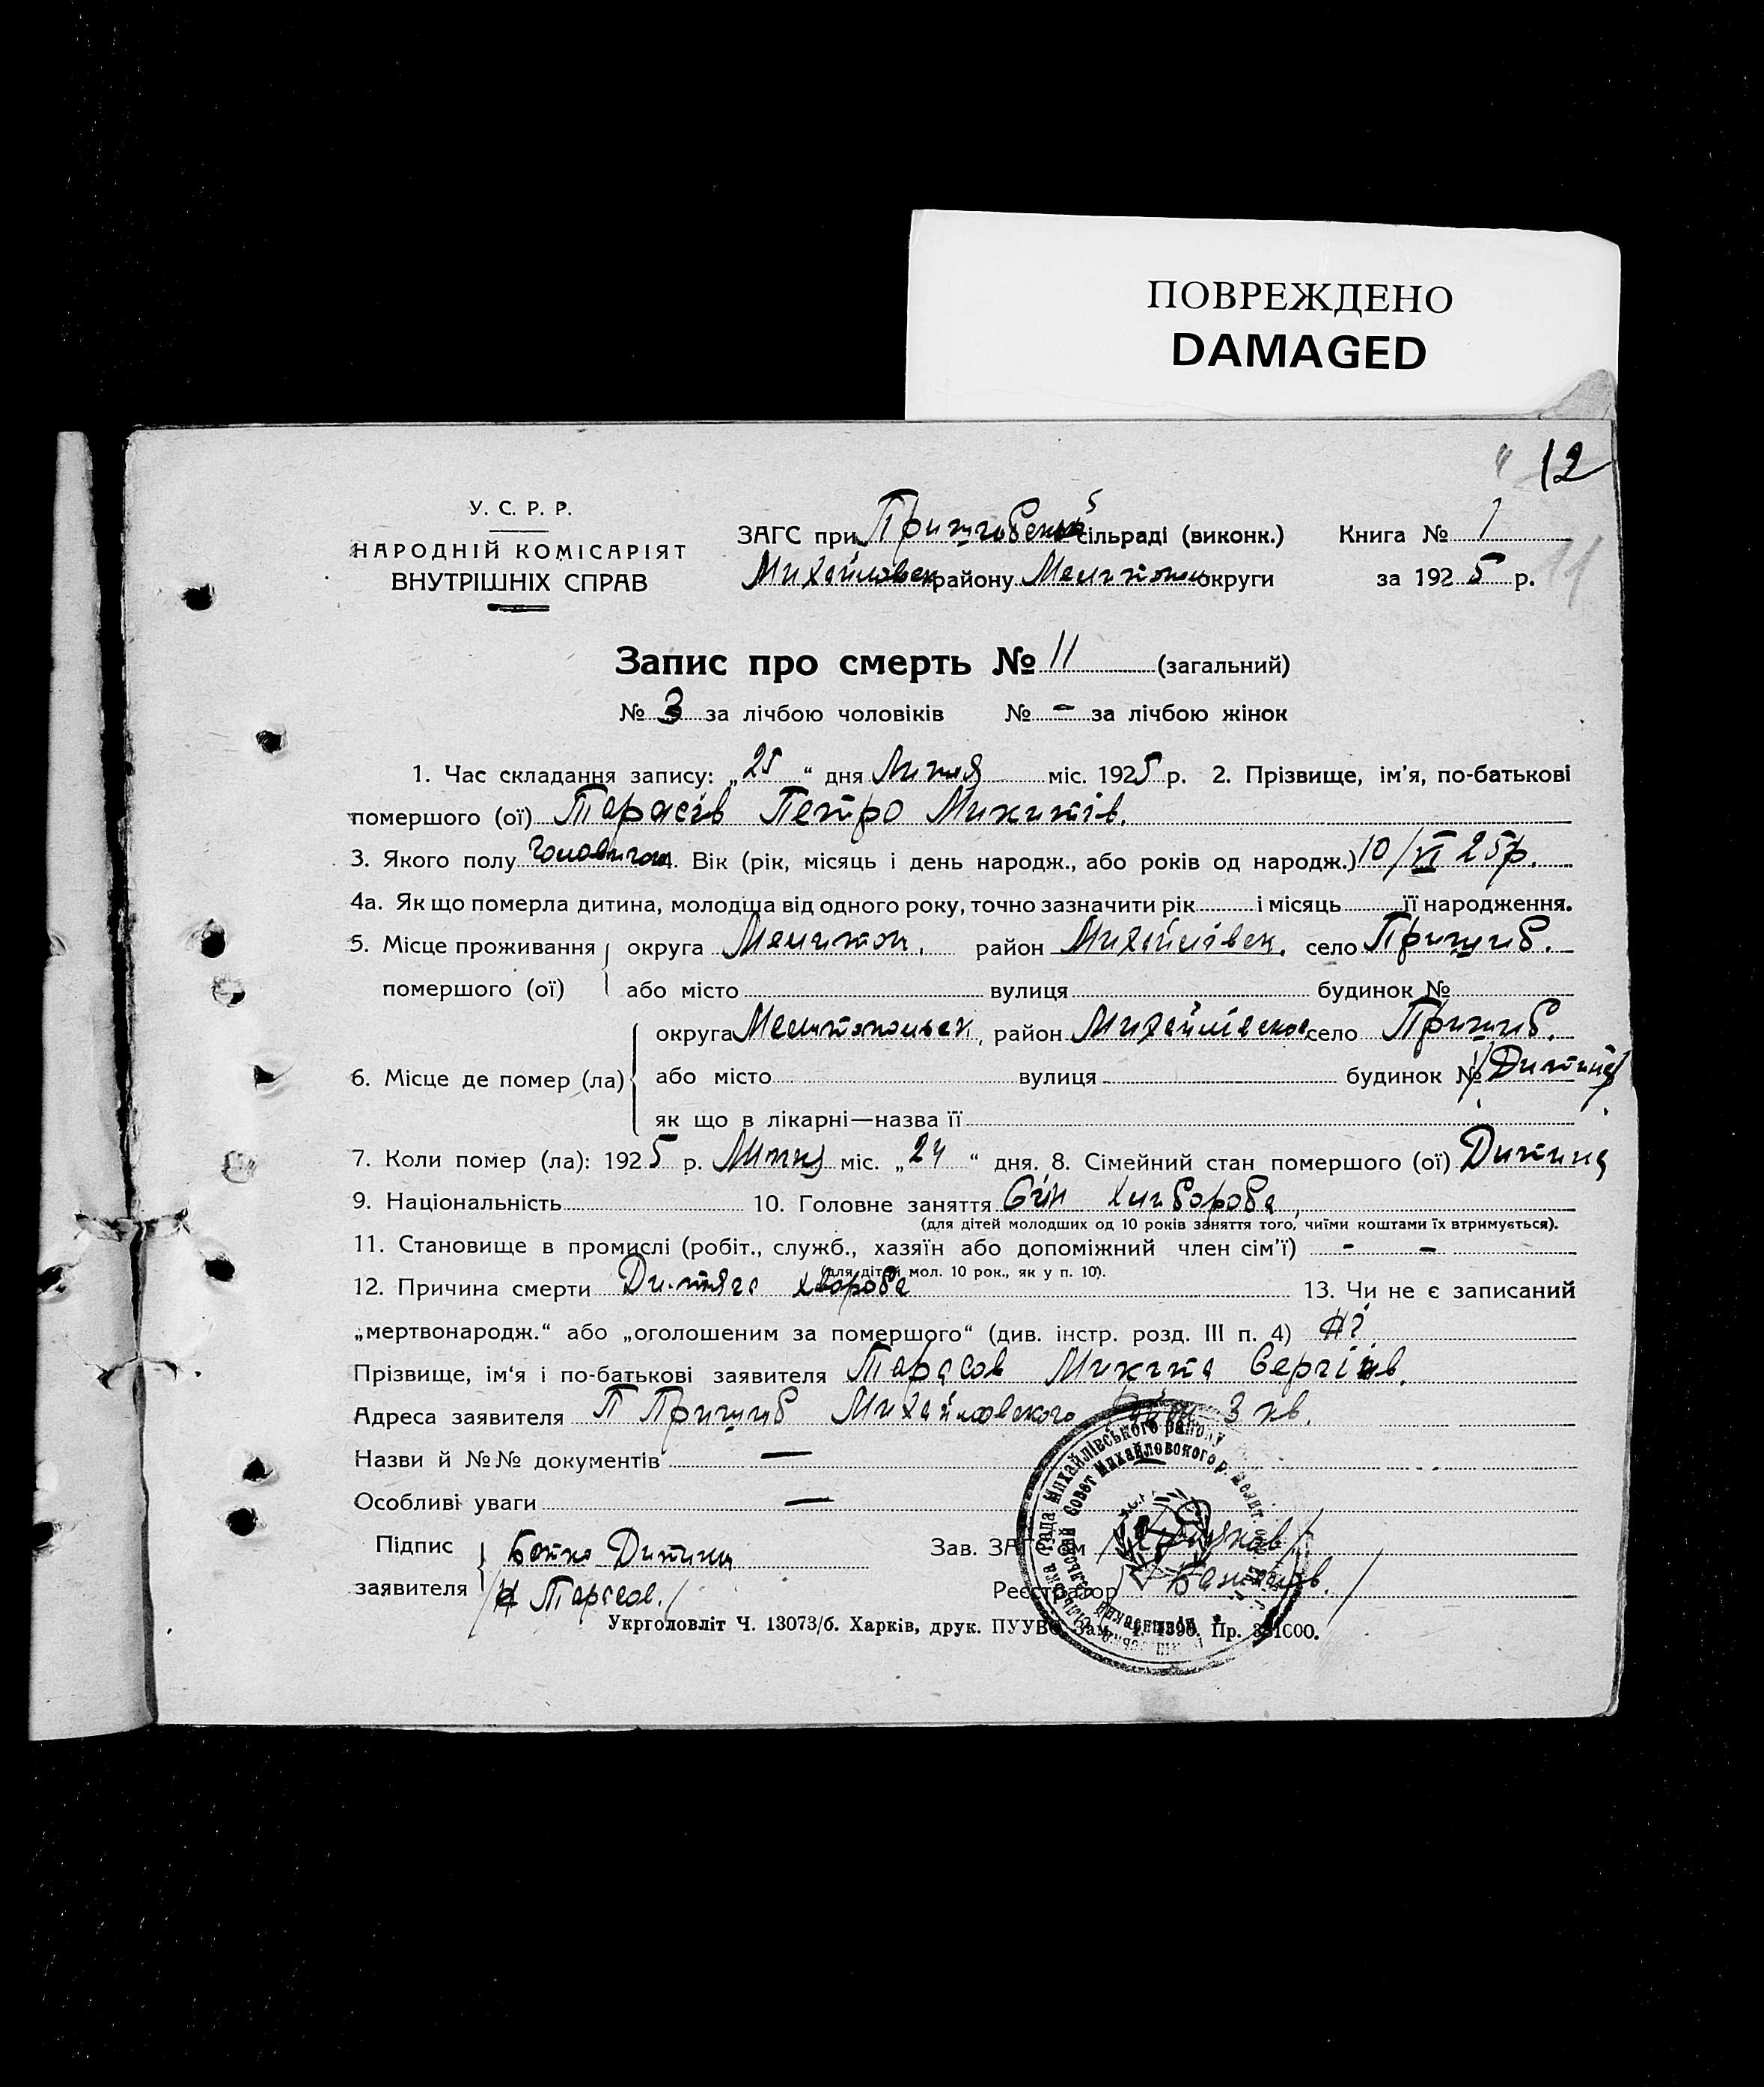 ПОВРЕЖДЕНО
DAMAGED
12
11
У. С. Р. Р.
НАРОДНІЙ КОМІСАРІЯТ
ВНУТРІШНІХ СПРАВ
ЗАГС при Пришибській сільраді (виконк.) Книга № 1
Михайловск району Мелитополь округи за 1925 р.
Запис про смерть № 11 (загальний)
№ 3 за лічбою чоловіків № - за лічбою жінок
1. Час складання запису: „25“ дня Липня міс. 1925 р. 2. Прізвище, ім'я, по-батькові
помершого (ої) Тарасів Петро Микитів.
3. Якого полу Чоловічого 4. Вік (рік, місяць і день народж., або років од народж.) 10/VI 25р.
4а. Як що померла дитина, молодша від одного року, точно зазначити рік і місяць її народження.
5. Місце проживання округа Мелитоп. район Михайлівск. село Пришиб.
помершого (ої) або місто вулиця будинок №
округа Мелитопольск, район Михайлівском село Пришиб.
6. Місце де помер (ла) або місто вулиця будинок № /Дитина/
як що в лікарні—назва її
7. Коли помер (ла): 1925 р. Липня міс. „24“ дня. 8. Сімейний стан помершого (ої) Дитина
9. Національність 10. Головне заняття Син хлібороба,
(для дітей молодших од 10 років заняття того, чиїми коштами їх втримується).
11. Становище в промислі (робіт., служб., хазяїн або допоміжний член сім'ї) - -
(для дітей мол. 10 рок., як у п. 10).
12. Причина смерти Дитяча хвороба 13. Чи не є записаний
„мертвонародж.“ або „оголошеним за помершого“ (див. інстр. розд. III п. 4) Ні
Прізвище, ім'я і по-батькові заявителя Тарасов Микита Сергіїв.
Адреса заявителя П Пришиб Михайловского 3 кв.
Назви й №№ документів —
Особливі уваги —
Підпис Батько Дитини Зав. ЗАГС'ом
заявителя /Н Тарасов./ Реєстратор
Рада Михайлівського району
Совет Михайловского р. Мелит.
Укрголовліт Ч. 13073/б. Харків, друк. ПУУВО. Зам. Пр.